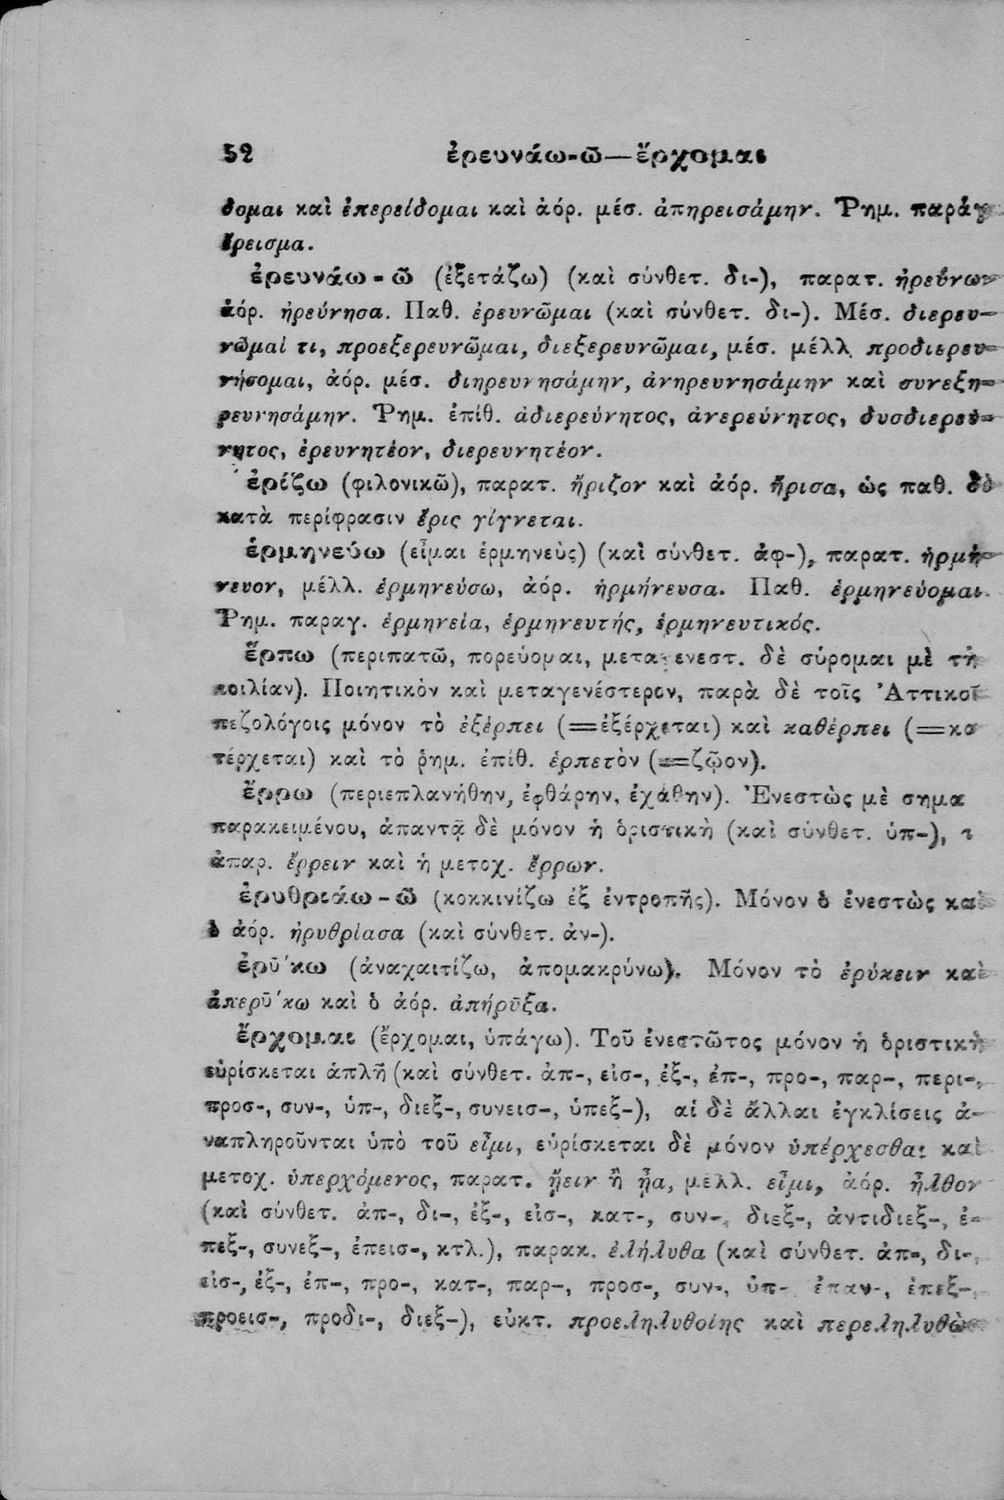 52 ἐρευνάω-ῶ—ἔρχομαι
δομαι καὶ ἐπερείδομαι καὶ ἀόρ. μέσ. ἀπηρεισάμην. Ῥημ. παράγ
ἔρεισμα.
ἐρευνάω-ῶ (ἐξετάζω) (καὶ σύνθετ. δι-), παρατ. ἠρεύνων
ἀόρ. ἠρεύνησα. Παθ. ἐρευνῶμαι (καὶ σύνθετ. δι-). Μέσ. διερευ-
νῶμαί τι, προεξερευνῶμαι, διεξερευνῶμαι, μέσ. μέλλ. προδιερευ-
νήσομαι, ἀόρ. μέσ. διηρευνησάμην, ἀνηρευνησάμην καὶ συνεξη-
ρευνησάμην. Ῥημ. ἐπίθ. ἀδιερεύνητος, ἀνερεύνητος, δυσδιερεύ-
νητος, ἐρευνητέον, διερευνητέον.
ἐρίζω (φιλονικῶ), παρατ. ἤριζον καὶ ἀόρ. ἤρισα, ὡς παθ. δὲ
κατὰ περίφρασιν ἔρις γίγνεται.
ἑρμηνεύω (εἶμαι ἑρμηνεὺς) (καὶ σύνθετ. ἀφ-), παρατ. ἡρμή-
νευον, μέλλ. ἑρμηνεύσω, ἀόρ. ἡρμήνευσα. Παθ. ἑρμηνεύομαι.
Ῥημ. παραγ. ἑρμηνεία, ἑρμηνευτής, ἑρμηνευτικός.
ἕρπω (περιπατῶ, πορεύομαι, μεταγενεστ. δὲ σύρομαι μὲ τὴ
κοιλίαν). Ποιητικὸν καὶ μεταγενέστερον, παρὰ δὲ τοῖς Ἀττικοῖ
πεζολόγοις μόνον τὸ ἐξέρπει (=ἐξέρχεται) καὶ καθέρπει (=κα
τέρχεται) καὶ τὸ ῥημ. ἐπίθ. ἑρπετὸν (=ζῷον).
ἔρρω (περιεπλανήθην, ἐφθάρην, ἐχάθην). Ἐνεστὼς μὲ σημα
παρακειμένου, ἀπαντᾷ δὲ μόνον ἡ ὁριστικὴ (καὶ σύνθετ. ὑπ-), τ
ἀπαρ. ἔρρειν καὶ ἡ μετοχ. ἔρρων.
ἐρυθριάω-ῶ (κοκκινίζω ἐξ ἐντροπῆς). Μόνον ὁ ἐνεστὼς καὶ
ὁ ἀόρ. ἠρυθρίασα (καὶ σύνθετ. ἀν-).
ἐρῡ́κω (ἀναχαιτίζω, ἀπομακρύνω). Μόνον τὸ ἐρύκειν καὶ
ἀπερῡ́κω καὶ ὁ ἀόρ. ἀπήρῡξα.
ἔρχομαι (ἔρχομαι, ὑπάγω). Τοῦ ἐνεστῶτος μόνον ἡ ὁριστικὴ
εὑρίσκεται ἁπλῆ (καὶ σύνθετ. ἀπ-, εἰσ-, ἐξ-, ἐπ-, προ-, παρ-, περι-,
προσ-, συν-, ὑπ-, διεξ-, συνεισ-, ὑπεξ-), αἱ δὲ ἄλλαι ἐγκλίσεις ἀ-
ναπληροῦνται ὑπὸ τοῦ εἶμι, εὑρίσκεται δὲ μόνον ὑπέρχεσθαι καὶ
μετοχ. ὑπερχόμενος, παρατ. ᾔειν ἢ ᾖα, μέλλ. εἶμι, ἀόρ. ἦλθον
(καὶ σύνθετ. ἀπ-, δι-, ἐξ-, εἰσ-, κατ-, συν-, διεξ-, ἀντιδιεξ-, ἐ-
πεξ-, συνεξ-, ἐπεισ-, κτλ.), παρακ. ἐλήλυθα (καὶ σύνθετ. ἀπ-, δι-,
εἰσ-, ἐξ-, ἐπ-, προ-, κατ-, παρ-, προσ-, συν-, ὑπ- ἐπαν-, ἐπεξ-,
προεισ-, προδι-, διεξ-), εὐκτ. προεληλυθοίης καὶ περεληλυθὼ